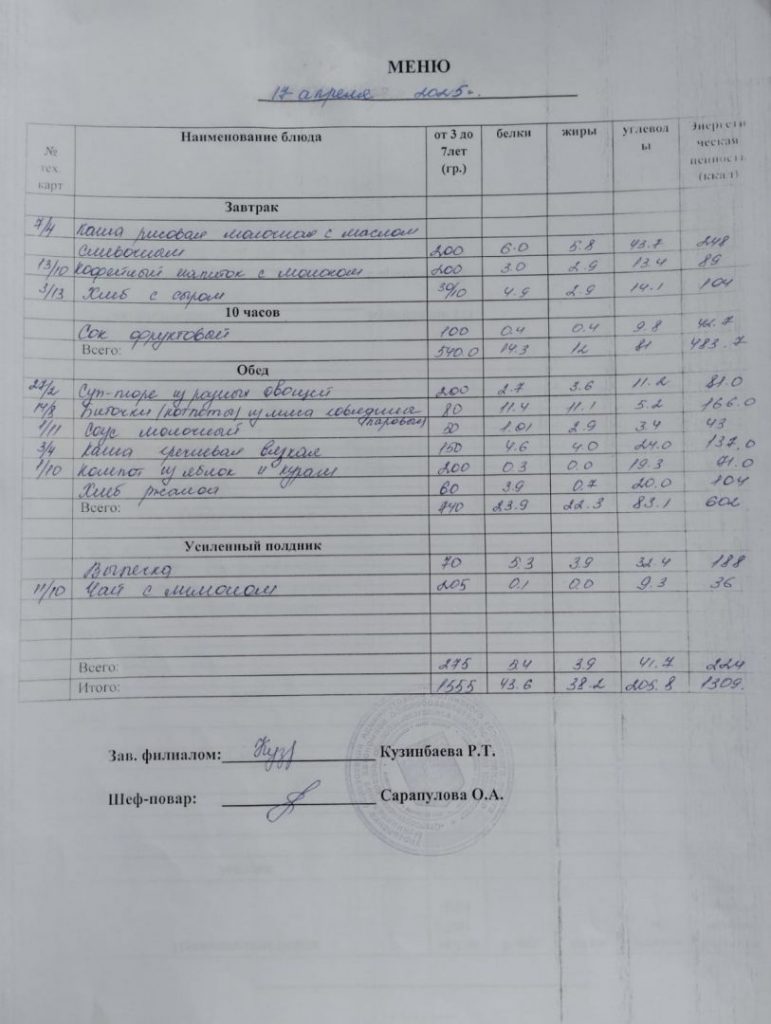 МЕНЮ
17 апреля 2025г.
№ тех. карт Наименование блюда от 3 до 7лет (гр.) белки жиры углеводы Энергетическая ценность (ккал)
Завтрак
7/4 Каша рисовая молочная с маслом
сливочным 200 6.0 5.8 43.7 248
13/10 Кофейный напиток с молоком 200 3.0 2.9 13.4 89
3/13 Хлеб с сыром 30/10 4.9 2.9 14.1 104
10 часов
Сок фруктовый 100 0.4 0.4 9.8 42.7
Всего: 540.0 14.3 12 81 483.7
Обед
27/2 Суп-пюре из разных овощей 200 2.7 3.6 11.2 81.0
14/8 Биточки (котлеты) из мяса говядина (паровые) 80 11.4 11.1 5.2 166.0
1/11 Соус молочный 50 1.01 2.9 3.4 43
3/4 Каша гречневая вязкая 150 4.6 4.0 24.0 137.0
1/10 Компот из яблок и кураги 200 0.3 0.0 19.3 71.0
Хлеб ржаной 60 3.9 0.7 20.0 104
Всего: 740 23.9 22.3 83.1 602
Усиленный полдник
Выпечка 70 5.3 3.9 32.4 188
11/10 Чай с лимоном 205 0.1 0.0 9.3 36
Всего: 275 5.4 3.9 41.7 224
Итого: 1555 43.6 38.2 205.8 1309.
Зав. филиалом: Кузинбаева Р.Т.
Шеф-повар: Сарапулова О.А.